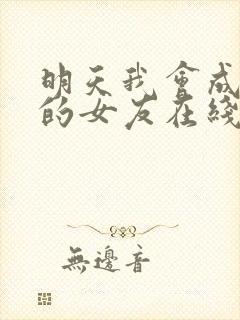 明天我會成
的女友在綫
無邊音